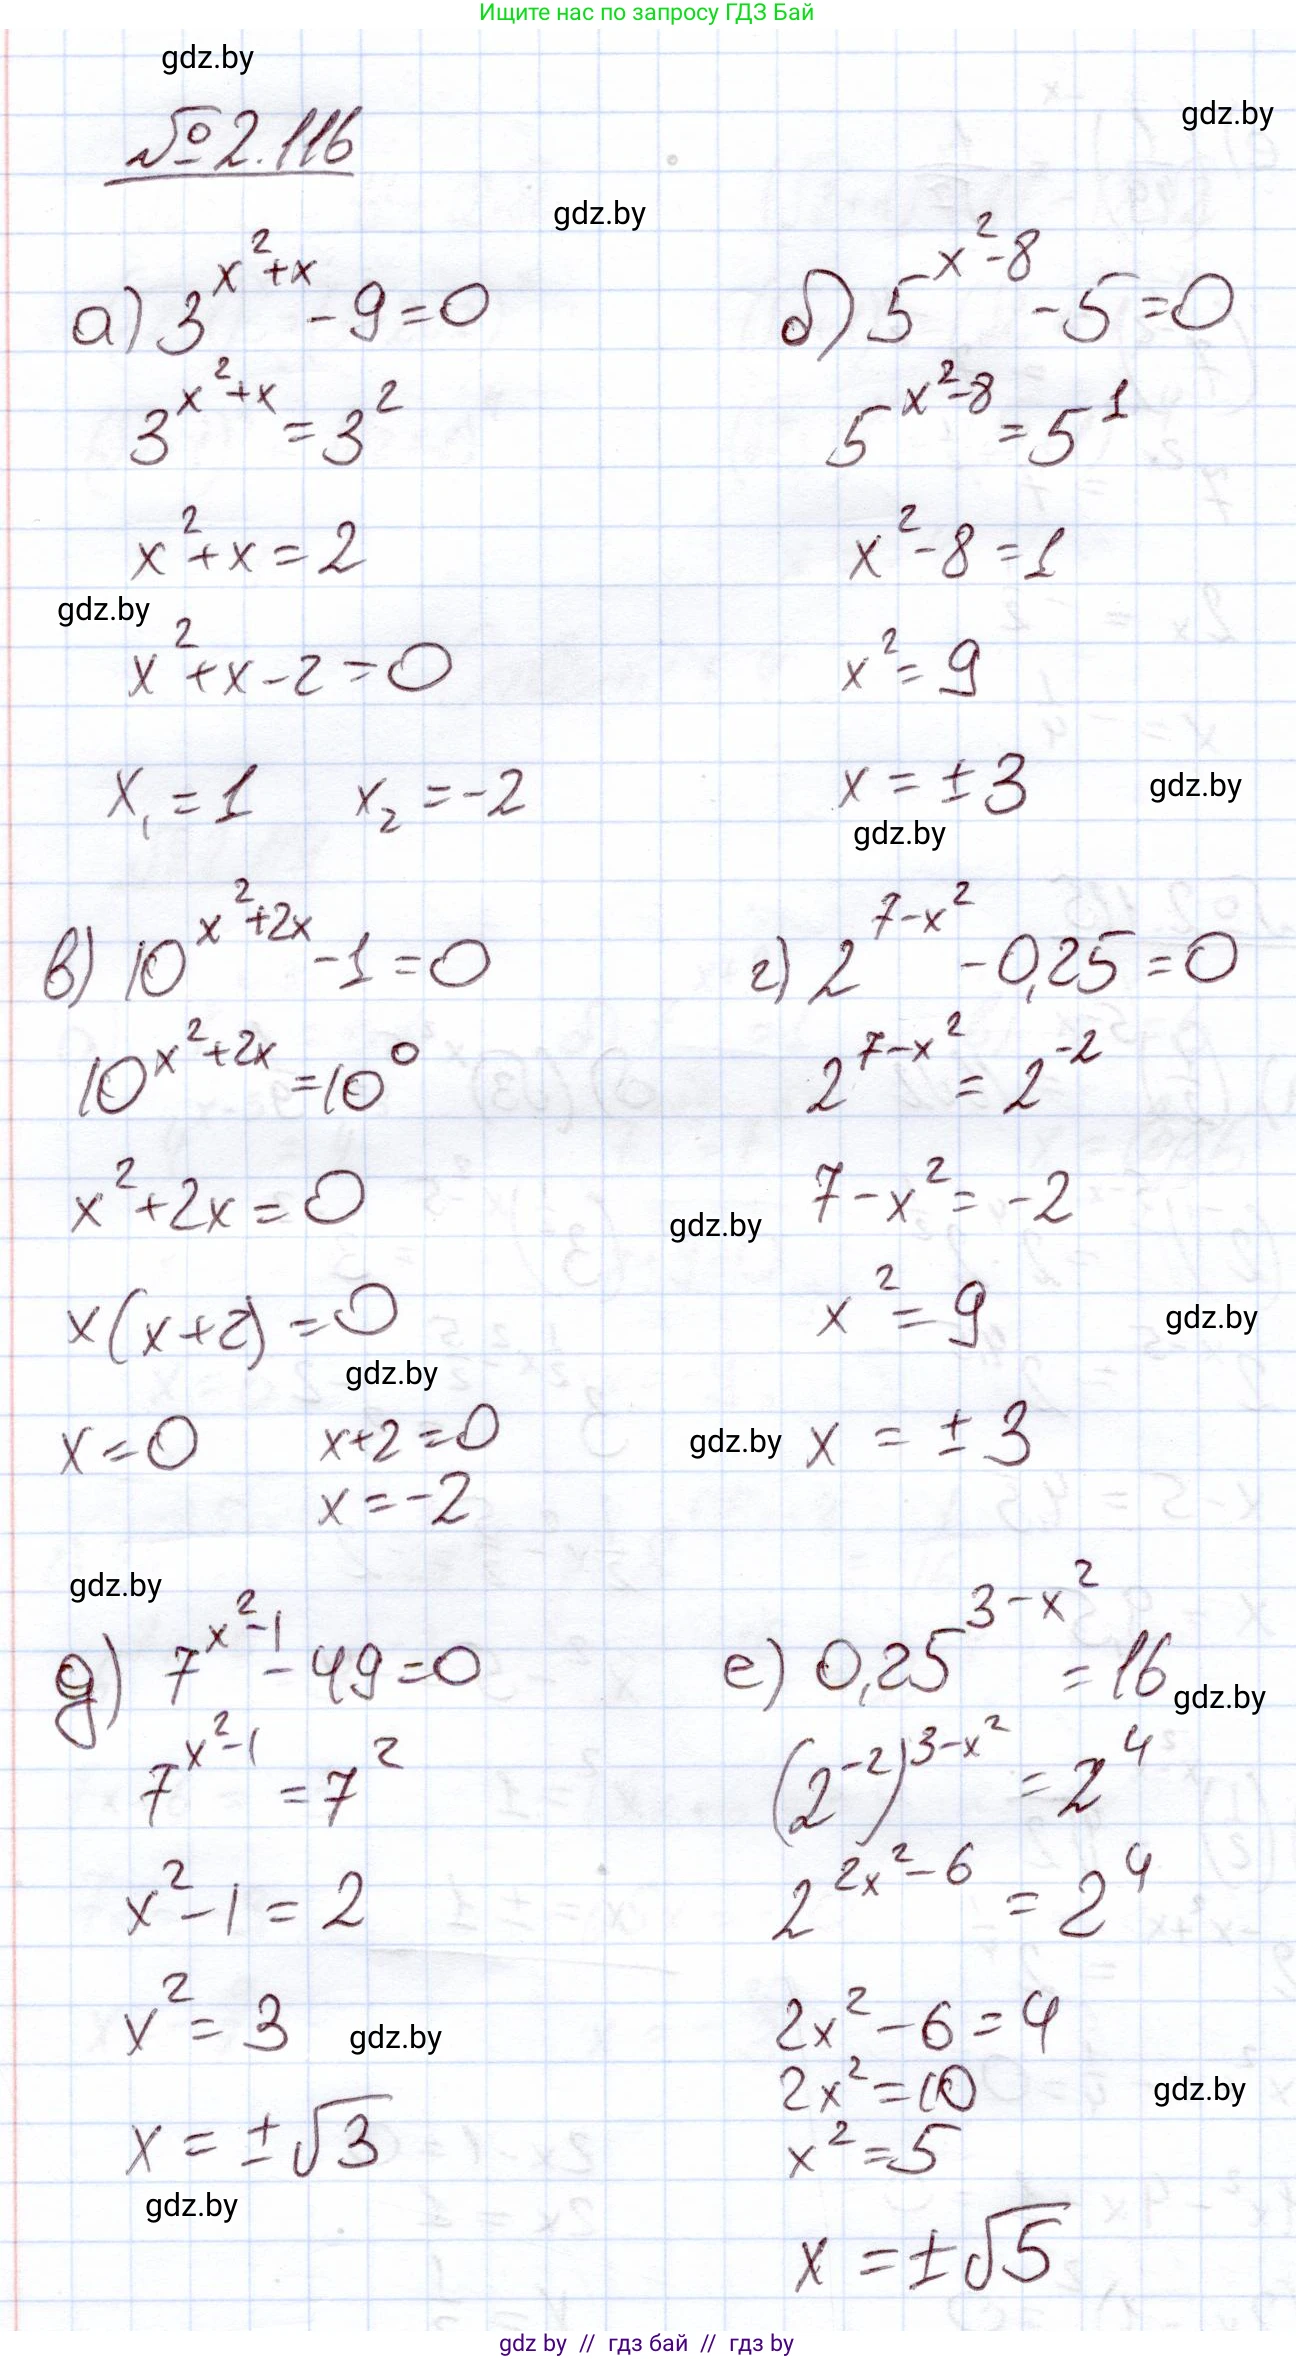 Ищите нас по запросу ГДЗ Бай
gdz.by
gdz.by
№ 2.116
gdz.by
а) 3^(x²+x) - 9 = 0
3^(x²+x) = 3²
x² + x = 2
gdz.by
x² + x - 2 = 0
x₁ = 1 x₂ = -2
б) 5^(x²-8) - 5 = 0
5^(x²-8) = 5¹
x² - 8 = 1
x² = 9
x = ±3
gdz.by
gdz.by
в) 10^(x²+2x) - 1 = 0
10^(x²+2x) = 10⁰
x² + 2x = 0
x(x+2) = 0
gdz.by
x = 0 x+2 = 0
x = -2
г) 2^(7-x²) - 0,25 = 0
2^(7-x²) = 2^(-2)
7 - x² = -2
gdz.by
x² = 9
gdz.by
gdz.by
x = ±3
gdz.by
д) 7^(x²-1) - 49 = 0
7^(x²-1) = 7²
x² - 1 = 2
x² = 3
gdz.by
x = ±√3
gdz.by
е) 0,25^(3-x²) = 16
gdz.by
(2^(-2))^(3-x²) = 2⁴
2^(2x²-6) = 2⁴
2x² - 6 = 4
2x² = 10
gdz.by
x² = 5
x = ±√5
gdz by // гдз бай // гдз by